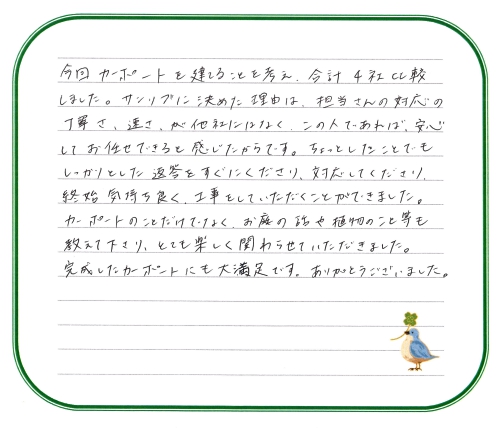 今回 カーポートを建てることを考え、合計4社比較
しました。サンリブに決めた理由は、担当さんの対応の
丁寧さ、速さ、が他社にはなく、この人であれば、安心
してお任せできると感じたからです。ちょっとしたことでも
しっかりとした返答をすぐにくださり、対応してくださり、
終始気持ち良く、工事をしていただくことができました。
カーポートのことだけでなく、お庭の話や植物のこと等も
教えて下さり、とても楽しく関わらせていただきました。
完成したカーポートにも大満足です。ありがとうございました。